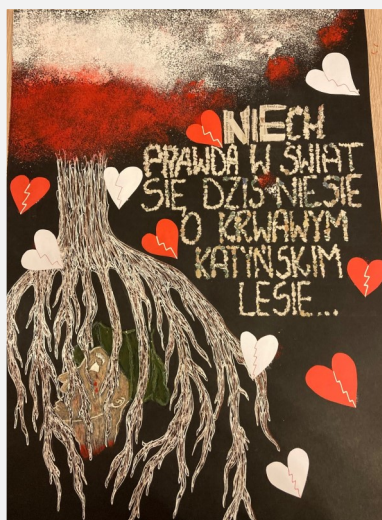 NIECH
PRAWDA W ŚWIAT
SIĘ DZIŚ NIESIE
O KRWAWYM
KATYŃSKIM
LESIE...